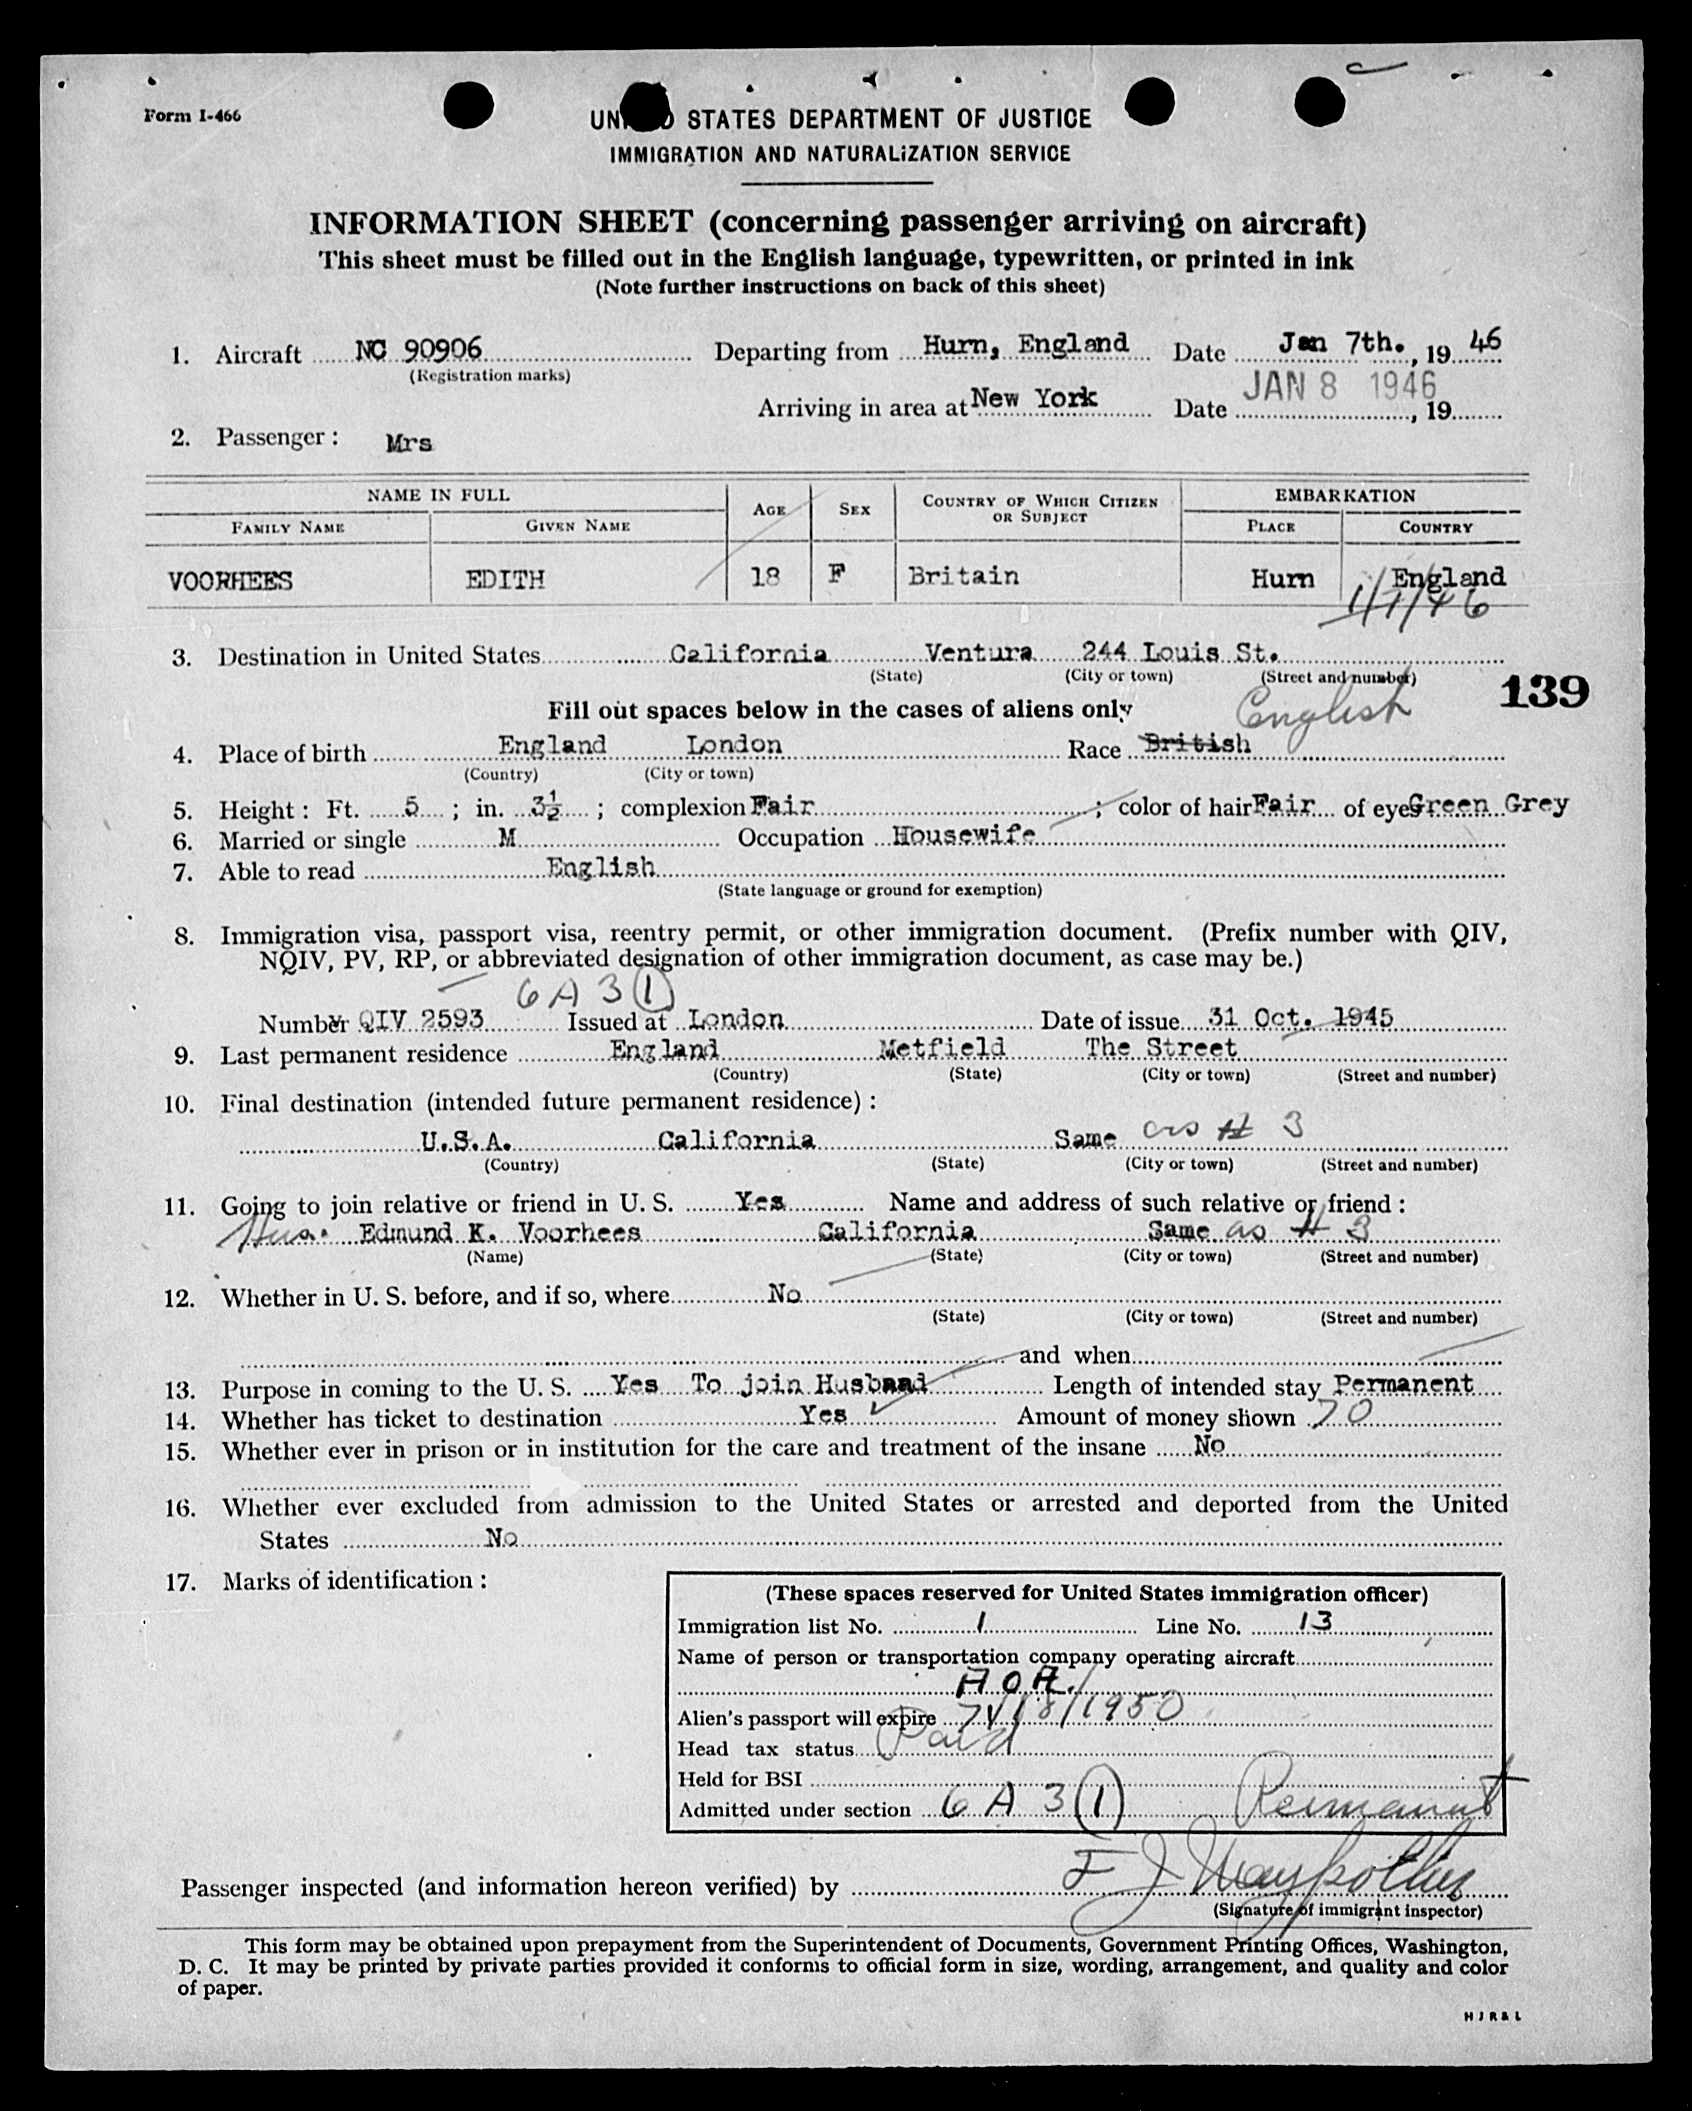 Form I-466
UNITED STATES DEPARTMENT OF JUSTICE
IMMIGRATION AND NATURALIZATION SERVICE
INFORMATION SHEET (concerning passenger arriving on aircraft)
This sheet must be filled out in the English language, typewritten, or printed in ink
(Note further instructions on back of this sheet)
1. Aircraft NC 90906 Departing from Hurn, England Date Jan 7th., 19 46
(Registration marks)
JAN 8 1946
Arriving in area at New York Date , 19
2. Passenger: Mrs
NAME IN FULL AGE SEX COUNTRY OF WHICH CITIZEN OR SUBJECT EMBARKATION
FAMILY NAME GIVEN NAME PLACE COUNTRY
VOORHEES EDITH 18 F Britain Hurn England
1/7/46
3. Destination in United States California Ventura 244 Louis St.
(State) (City or town) (Street and number)
139
Fill out spaces below in the cases of aliens only
English
4. Place of birth England London Race British
(Country) (City or town)
5. Height: Ft. 5 ; in. 3½ ; complexion Fair ; color of hair Fair of eyes Green Grey
6. Married or single M Occupation Housewife
7. Able to read English
(State language or ground for exemption)
8. Immigration visa, passport visa, reentry permit, or other immigration document. (Prefix number with QIV,
NQIV, PV, RP, or abbreviated designation of other immigration document, as case may be.)
6 A 3 (1)
Number QIV 2593 Issued at London Date of issue 31 Oct. 1945
9. Last permanent residence England Metfield The Street
(Country) (State) (City or town) (Street and number)
10. Final destination (intended future permanent residence):
U.S.A. California Same as # 3
(Country) (State) (City or town) (Street and number)
11. Going to join relative or friend in U. S. Yes Name and address of such relative or friend:
Hus. Edmund K. Voorhees California Same as # 3
(Name) (State) (City or town) (Street and number)
12. Whether in U. S. before, and if so, where No
(State) (City or town) (Street and number)
and when
13. Purpose in coming to the U. S. Yes To join Husband Length of intended stay Permanent
14. Whether has ticket to destination Yes Amount of money shown 70
15. Whether ever in prison or in institution for the care and treatment of the insane No
16. Whether ever excluded from admission to the United States or arrested and deported from the United
States No
17. Marks of identification:
(These spaces reserved for United States immigration officer)
Immigration list No. 1 Line No. 13
Name of person or transportation company operating aircraft
A O A.
Alien's passport will expire /1950
Head tax status Paid
Held for BSI
Admitted under section 6 A 3 (1) Permanent
Passenger inspected (and information hereon verified) by F J
(Signature of immigrant inspector)
This form may be obtained upon prepayment from the Superintendent of Documents, Government Printing Offices, Washington,
D. C. It may be printed by private parties provided it conforms to official form in size, wording, arrangement, and quality and color
of paper.
H J R & L